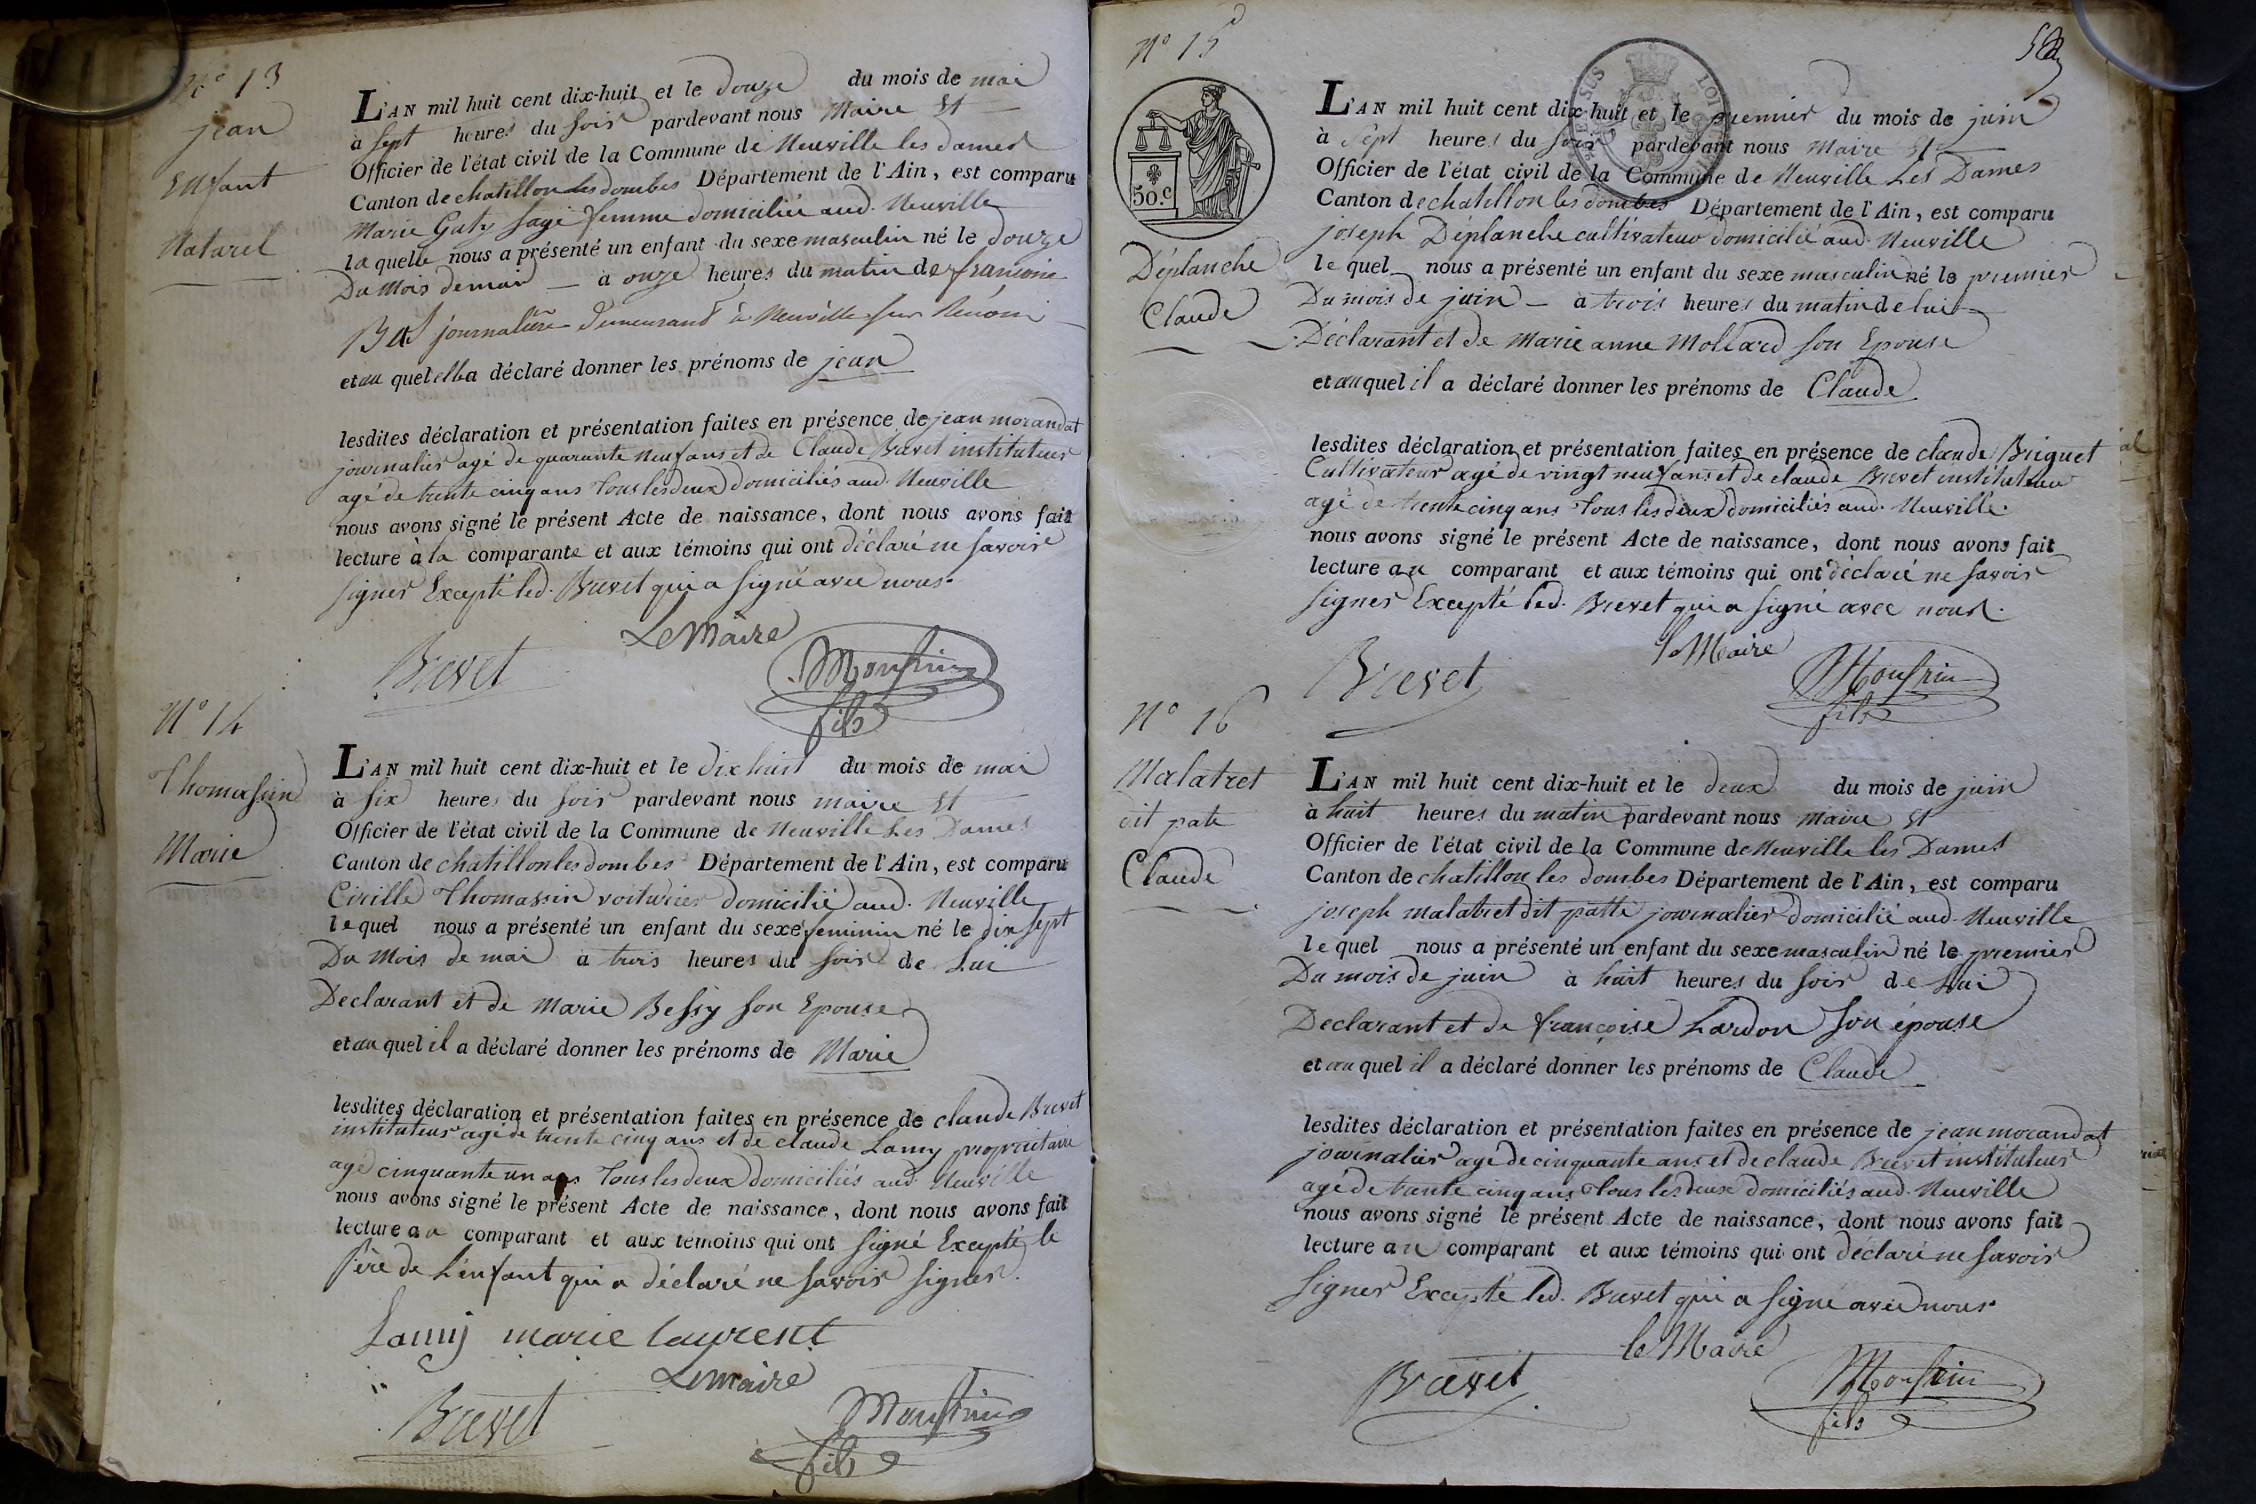 N° 13
jean
Enfant
Naturel
L'AN mil huit cent dix-huit et le douze du mois de mai
à sept heures du soir pardevant nous Maire Et
Officier de l'état civil de la Commune de Neuville les dames
Canton de chatillon les dombes Département de l'Ain, est comparu
Marie Guty sage femme domiciliée aud. Neuville
la quelle nous a présenté un enfant du sexe masculin né le douze
Du Mois de mai à onze heures du matin de francoise
Bas journalière demeurant à Neuville sur
et au quel elle a déclaré donner les prénoms de jean
lesdites déclaration et présentation faites en présence de jean morandat
journalier agé de quarante neuf ans et de Claude Brevet instituteur
agé de trente cinq ans Tous les deux domiciliés aud. Neuville
nous avons signé le présent Acte de naissance, dont nous avons fait
lecture à la comparante et aux témoins qui ont déclaré ne savoir
signer Excepté led. Brevet qui a signé avec nous.
Le Maire
Brevet Monfrin
fils
N° 14
Thomassin
Marie
L'AN mil huit cent dix-huit et le dix huit du mois de mai
à six heures du soir pardevant nous maire Et
Officier de l'état civil de la Commune de Neuville Les Dames
Canton de chatillon les dombes Département de l'Ain, est comparu
Cirille Thomassin voiturier domicilié aud. Neuville
le quel nous a présenté un enfant du sexe feminin né le dix sept
Du Mois de mai à trois heures du soir de Lui
Declarant et de Marie Bessy son Epouse
et au quel il a déclaré donner les prénoms de Marie
lesdites déclaration et présentation faites en présence de claude Brevet
instituteur agé de trente cinq ans et de claude Lamy propriétaire
agé cinquante un ans Tous les deux domiciliés aud. Neuville
nous avons signé le présent Acte de naissance, dont nous avons fait
lecture au comparant et aux témoins qui ont signé Excepté le
Père de L'enfant qui a déclaré ne savoir signer.
Lamy marie laurent
Le maire
Brevet Monfrin
fils
N° 15
50.c
Déplanche
Claude
L'AN mil huit cent dix-huit et le premier du mois de juin
à sept heures du soir pardevant nous Maire Et
Officier de l'état civil de la Commune de Neuville Les Dames
Canton de chatillon les dombes Département de l'Ain, est comparu
joseph Déplanche cultivateur domicilié aud. Neuville
le quel nous a présenté un enfant du sexe masculin né le premier
Du mois de juin à trois heures du matin de lui
Déclarant et de Marie anne Mollard son Epouse
et au quel il a déclaré donner les prénoms de Claude
lesdites déclaration et présentation faites en présence de claude Briguet
Cultivateur agé de vingt neuf ans et de claude Brevet instituteur
agé de trente cinq ans Tous les deux domiciliés aud. Neuville.
nous avons signé le présent Acte de naissance, dont nous avons fait
lecture au comparant et aux témoins qui ont déclaré ne savoir
signer Excepté led. Brevet qui a signé avec nous.
le Maire
Brevet Monfrin
fils
N° 16
Malatret
dit pate
Claude
L'AN mil huit cent dix-huit et le deux du mois de juin
à huit heures du matin pardevant nous Maire Et
Officier de l'état civil de la Commune de Neuville les Dames
Canton de chatillon les dombes Département de l'Ain, est comparu
joseph malatret dit patte journalier domicilié aud. Neuville
le quel nous a présenté un enfant du sexe masculin né le premier
Du mois de juin à huit heures du soir de Lui
Declarant et de françoise Lardon son épouse
et au quel il a déclaré donner les prénoms de Claude
lesdites déclaration et présentation faites en présence de jean morandat
journalier agé de cinquante ans et de claude Brevet instituteur
agé de trente cinq ans Tous les deux domiciliés aud. Neuville
nous avons signé le présent Acte de naissance, dont nous avons fait
lecture au comparant et aux témoins qui ont déclaré ne savoir
signer Excepté led. Brevet qui a signé avec nous.
le Maire
Brevet Monfrin
fils